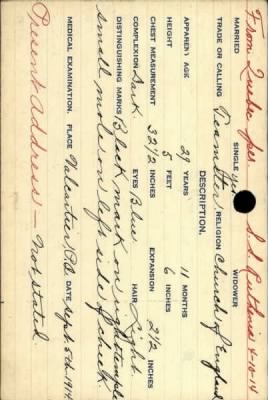 From Quebec per S.S. Ruthenia 4-10-14
MARRIED SINGLE yes WIDOWER
TRADE OR CALLING Teamster RELIGION Church of England
DESCRIPTION.
APPARENT AGE 29 YEARS 11 MONTHS
HEIGHT 5 FEET 6 INCHES
CHEST MEASUREMENT 32½ INCHES EXPANSION 2½ INCHES
COMPLEXION Dark EYES Blue HAIR Light.
DISTINGUISHING MARKS Black mark on right temple
small mole on left side of cheek
MEDICAL EXAMINATION. PLACE Valcartier P.Q. DATE Sept. 5th 1914
Present Address — Not stated.